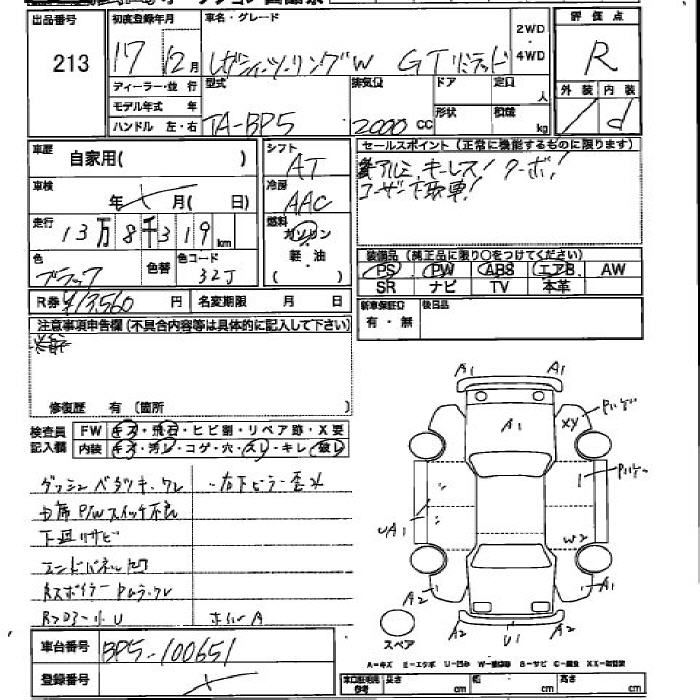 出品番号 初度登録年月 車名・グレード 2WD ・ 4WD 評価点
213 17年 12月 レガシィツーリングW GTリミテッド R
ディーラー・並行 型式 排気量 ドア 定口 人 外装 内装
モデル年式 年 形状 積載 kg
ハンドル 左・右 TA-BP5 2000 CC / d
車歴 自家用( ) シフト AT セールスポイント(正常に機能するものに限ります)
アルミ、キーレス! ターボ!
ユーザー下取車!
車検 年 月( 日) 冷房 AAC
走行 13万8千319km 燃料 ガソリン ・ 軽油 ・ ( )
装備品(純正品に限り○をつけてください)
色 ブラック 色替 色コード 32J PS PW ABS エアB AW
SR ナビ TV 本革
R券 ¥13,560 円 名変期限 月 日 新車保証口 有・無 後日品
注意事項申告欄(不具合内容等は具体的に記入して下さい)
修復歴 有(箇所 )
検査員 FW キズ・飛石・ヒビ割・リペア跡・X要
記入欄 内装 キズ・汚レ・コゲ・穴・スレ・キレ・破レ
ダッシュベタツキ、ウレ 右下ピラー歪ミ
P/Wスイッチ不良
下廻りサビ
エンドパネル凹
U ホイルA
A1 A1
A1 XY
UA1 W2
A2 A1
A2 U1 A2
スペア
車台番号 BP5-100651
登録番号
A-キズ E-エクボ U-凹み
車口証明用参考 長さ cm 幅 cm 高さ cm